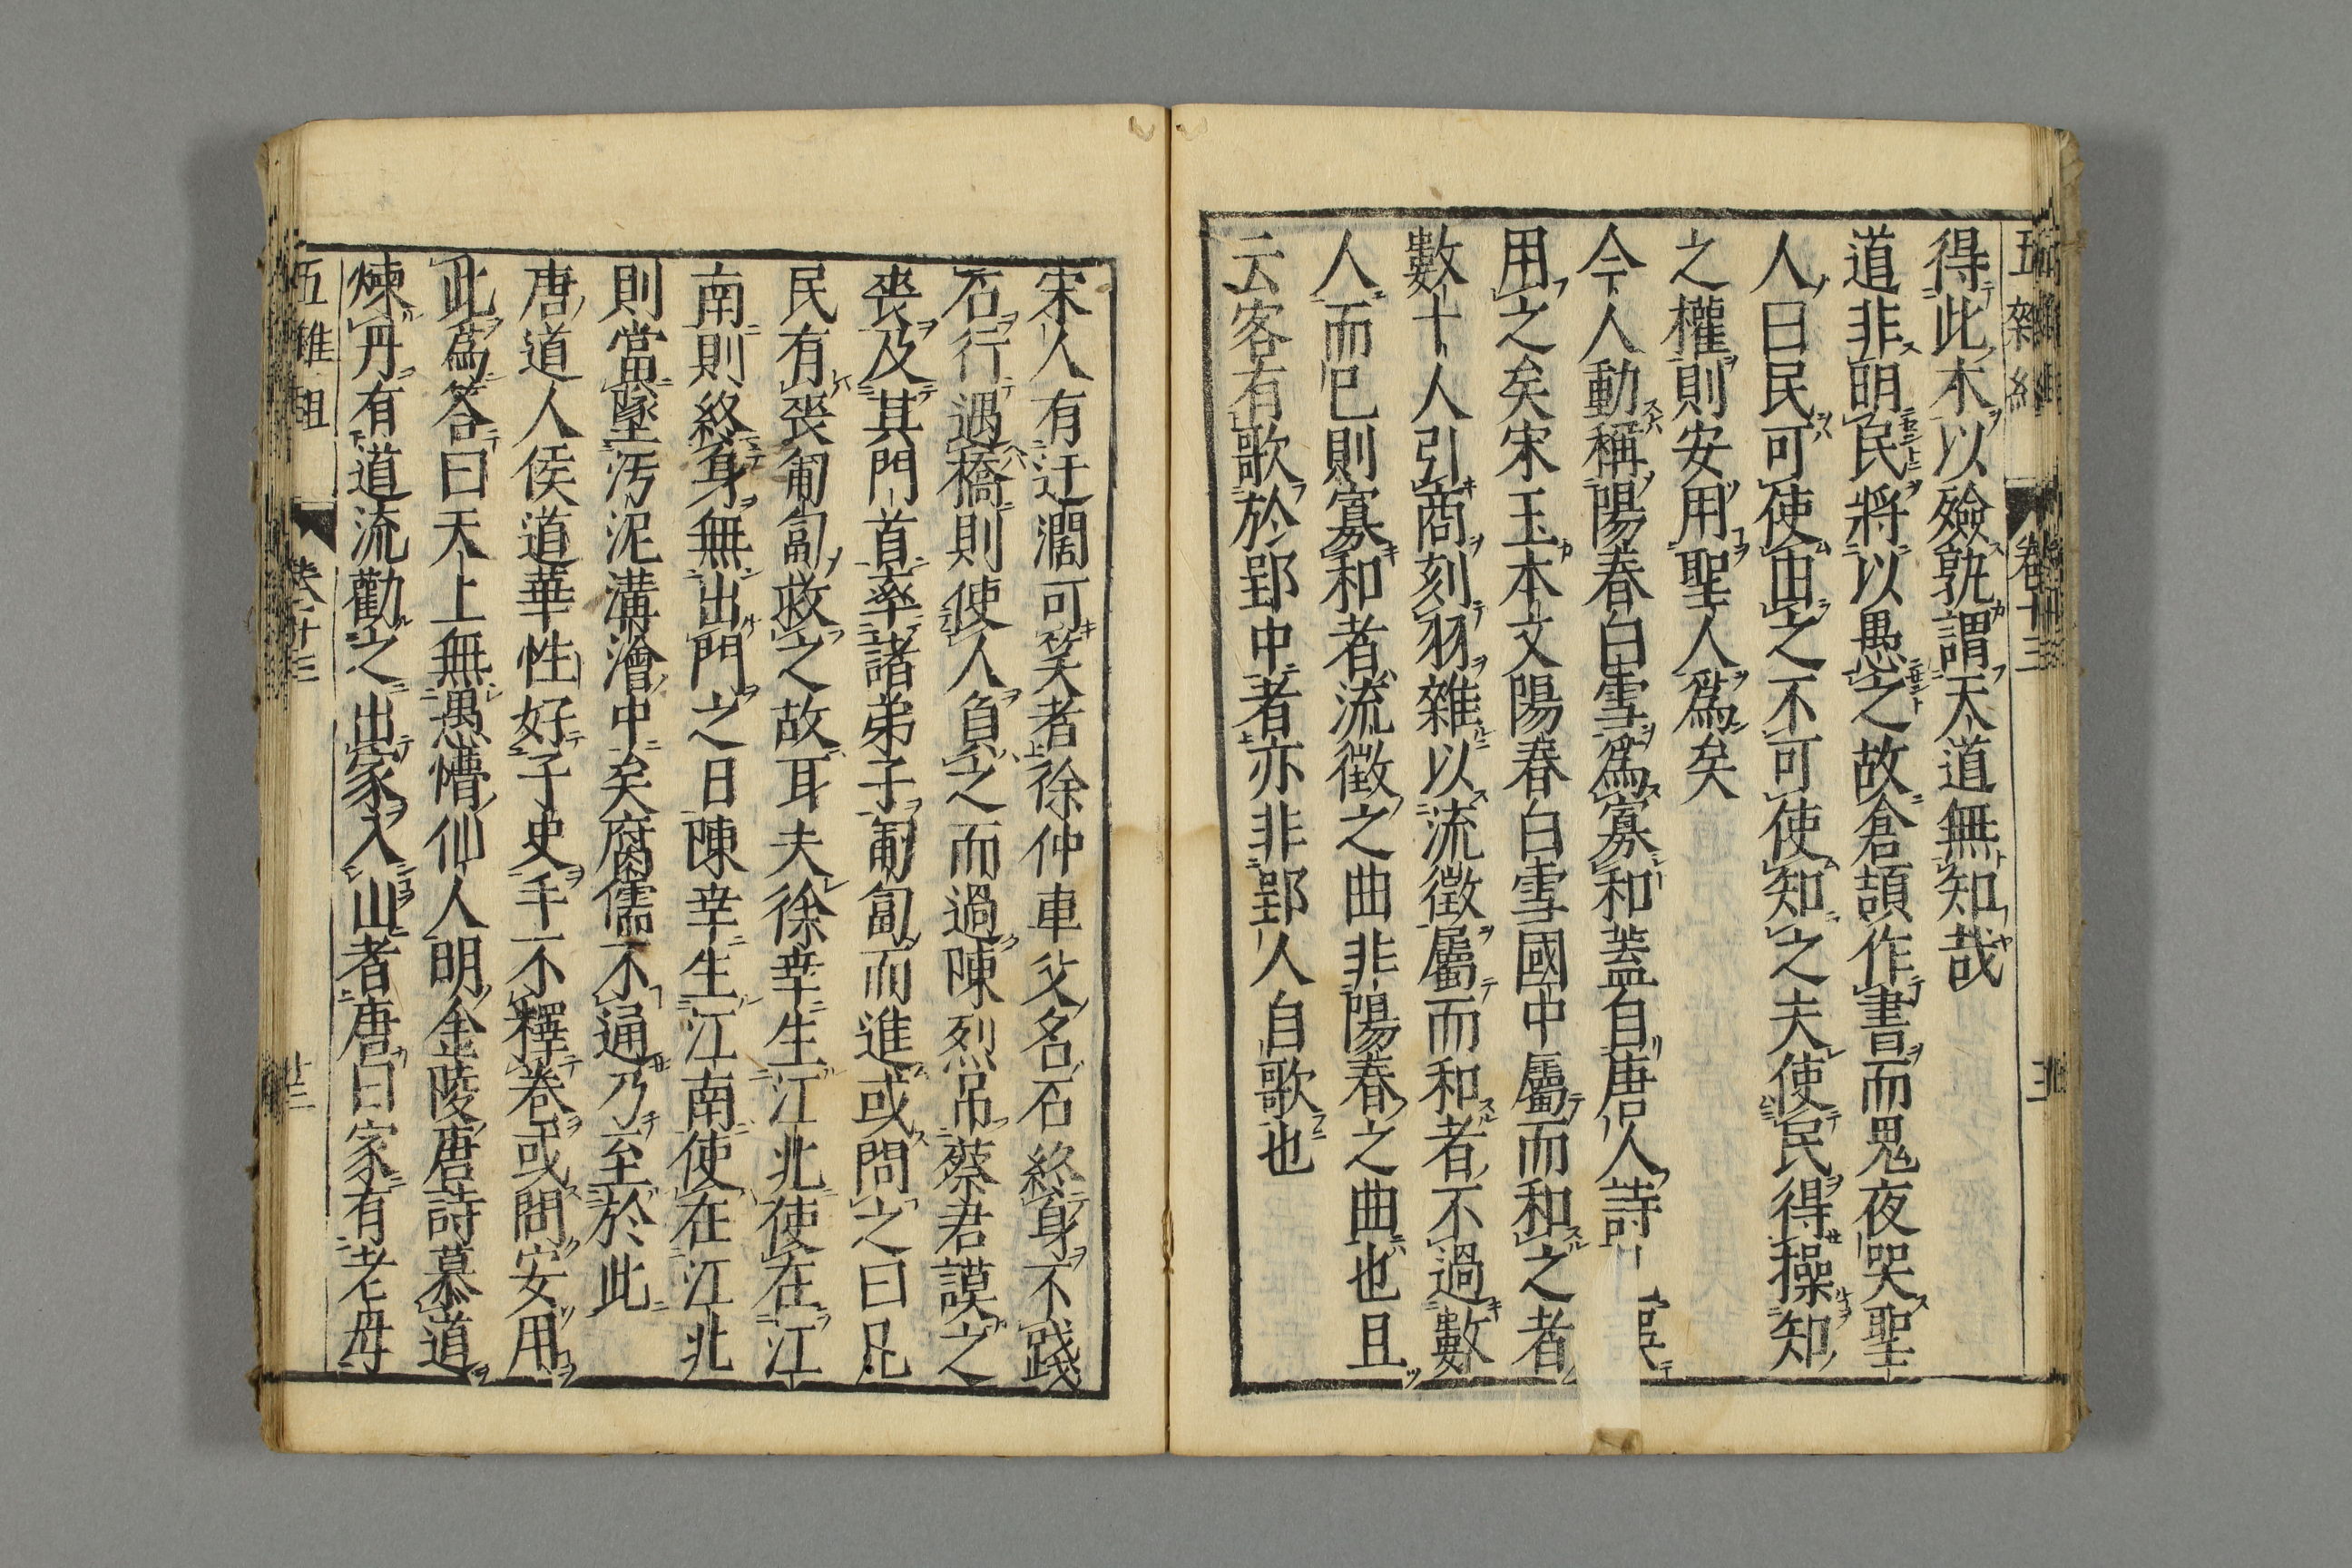 五雜組
卷十三
得此木以殮孰謂天道無知哉
道非明民將以愚之故倉頡作書而鬼夜哭聖
人曰民可使由之不可使知之夫使民得操知
之權則安用聖人爲矣
今人動稱陽春白雪爲寡和葢自唐人詩誤
用之矣宋玉本文陽春白雪國中屬而和之者
數十人引商刻羽雜以流徵屬而和者不過數
人而巳則寡和者流徵之曲非陽春之曲也且
云客有歌於郢中者亦非郢人自歌也
宋人有迂濶可笑者徐仲車父名石終身不踐
石行遇橋則使人負之而過陳烈吊蔡君謨之
喪及其門首率諸弟子匍匐而進或問之曰凡
民有喪匍匐救之故耳夫徐幸生江北使在江
南則終身無出門之日陳幸生江南使在江北
則當墜汚泥溝澮中矣腐儒不通乃至於此
唐道人侯道華性好子史手不釋卷或問安用
此爲答曰天上無愚懵仙人明金陵唐詩慕道
煉丹有道流勸之出家入山者唐曰家有老母
五雜組
卷十三
廿三